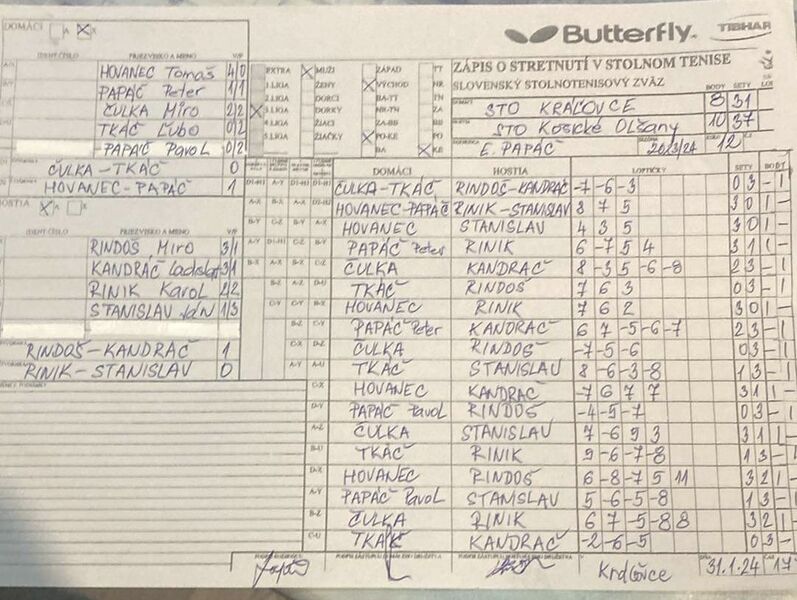 DOMÁCI A X
Butterfly TIBHAR
IDENT.ČÍSLO PRIEZVISKO A MENO V/P
HOVANEC Tomáš 4/0
PAPÁČ Peter 1/1
ČULKA Miro 2/2
TKÁČ Ľubo 0/2
PAPÁČ Pavol 0/2
ČULKA-TKÁČ 0
HOVANEC-PAPÁČ 1
EXTRA MUŽI ZÁPAD TT
1.LIGA ŽENY VÝCHOD NR
2.LIGA DORCI BA-TT TN
3.LIGA DORKY NR-TN ZA
4.LIGA ŽIACI ZA-BB BB
5.LIGA ŽIAČKY PO-KE PO
BA KE
ZÁPIS O STRETNUTÍ V STOLNOM TENISE
SLOVENSKÝ STOLNOTENISOVÝ ZVÄZ BODY SETY
STO KRÁĽOVCE 8 31
STO Košické Olšany 10 37
E. PAPÁČ 2023/24 12
HOSTIA X
IDENT.ČÍSLO PRIEZVISKO A MENO V/P
RINDOŠ, Miro 3/1
KANDRÁČ Ladislav 3/1
RINIK Karol 2/2
STANISLAV Ján 1/3
RINDOŠ-KANDRÁČ 1
RINIK-STANISLAV 0
DOMÁCI HOSTIA LOPTIČKY SETY BODY
ČULKA-TKÁČ RINDOŠ-KANDRÁČ -7 -6 -3 0 3 - 1
HOVANEC-PAPÁČ RINIK-STANISLAV 8 7 5 3 0 1 -
HOVANEC STANISLAV 4 3 5 3 0 1 -
PAPÁČ Peter RINIK 6 -7 5 4 3 1 1 -
ČULKA KANDRÁČ 8 -3 5 -6 -8 2 3 - 1
TKÁČ RINDOŠ 7 6 3 0 3 - 1
HOVANEC RINIK 7 6 2 3 0 1 -
PAPÁČ Peter KANDRÁČ 6 7 -5 -6 -7 2 3 - 1
ČULKA RINDOŠ -7 -5 -6 0 3 - 1
TKÁČ STANISLAV 8 -6 -3 -8 1 3 - 1
HOVANEC KANDRÁČ -7 6 7 7 3 1 1 -
PAPÁČ Pavol RINDOŠ -4 -5 -7 0 3 - 1
ČULKA STANISLAV 7 -6 9 3 3 1 1 -
TKÁČ RINIK 9 -6 -7 -8 1 3 - 1
HOVANEC RINDOŠ 6 -8 -7 5 11 3 2 1 -
PAPÁČ Pavol STANISLAV 5 -6 -5 -8 1 3 - 1
ČULKA RINIK 6 7 -5 -8 8 3 2 1 -
TKÁČ KANDRÁČ -2 -6 -5 0 3 - 1
Kráľovce 31.1.24 17